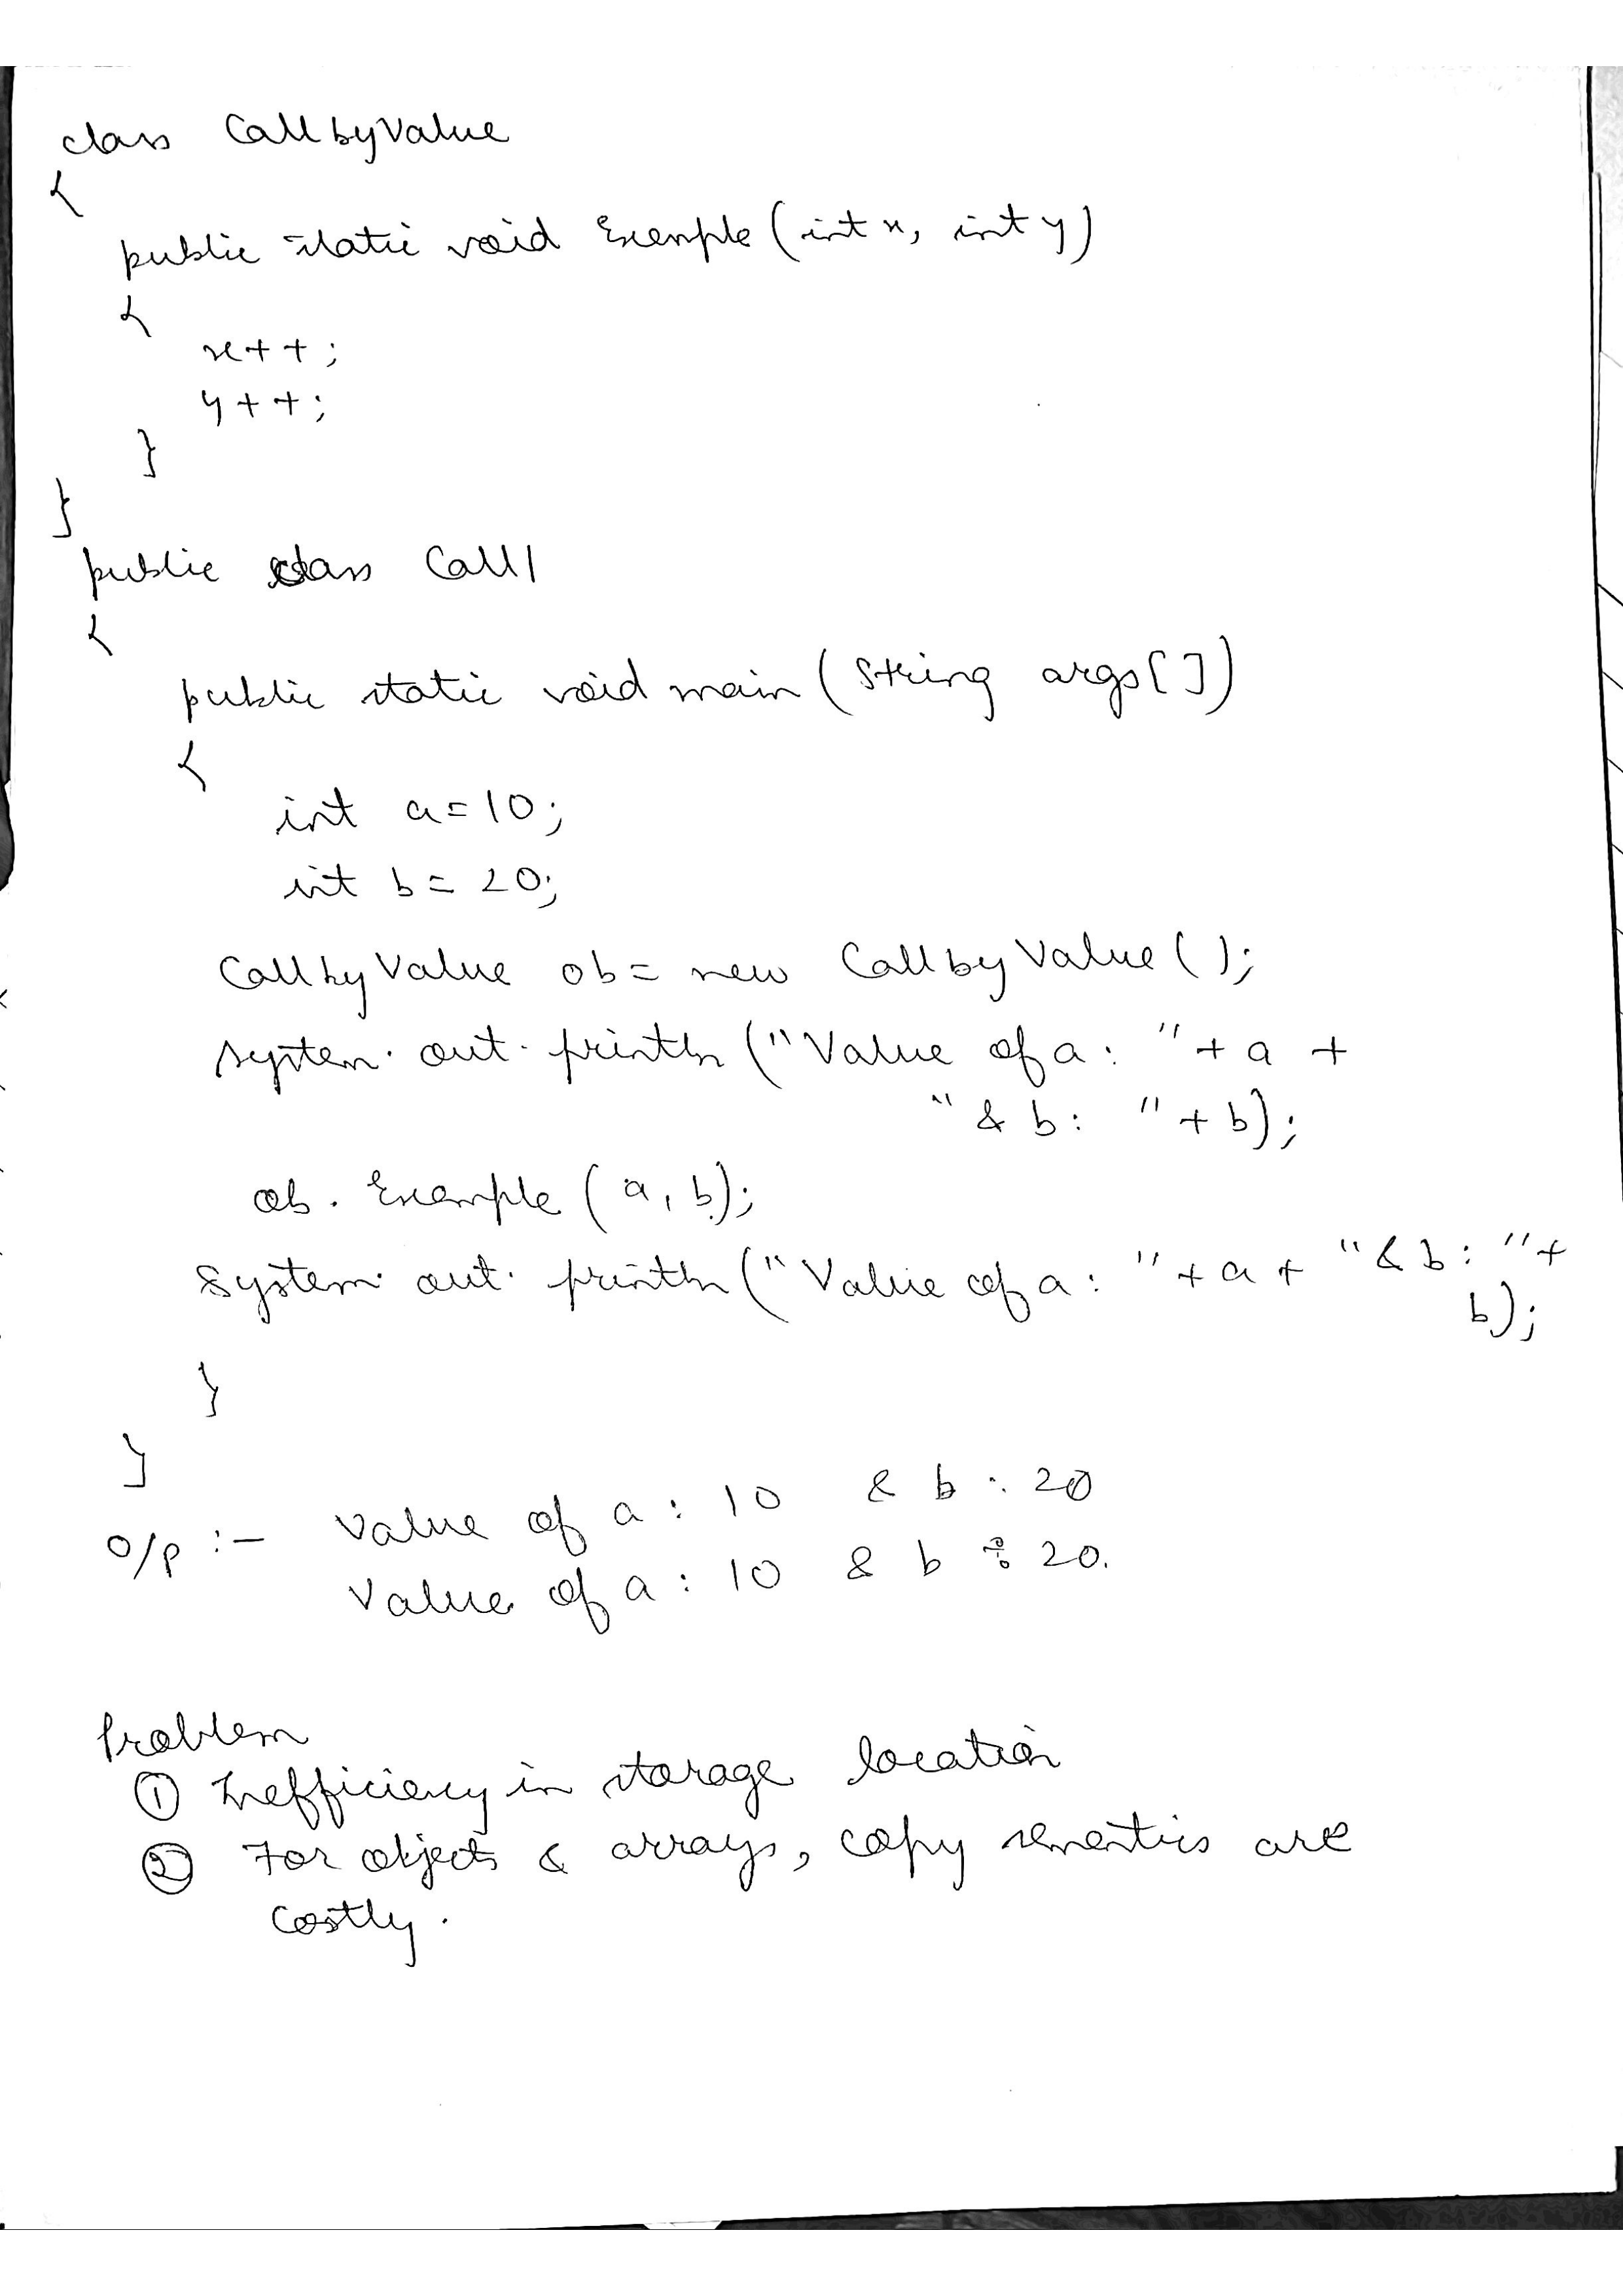 class CallbyValue
{
public static void Example (int x, int y)
{
x++;
y++;
}
}
public class Call1
{
public static void main (String args[])
{
int a=10;
int b= 20;
CallbyValue ob= new CallbyValue();
System.out.println ("Value of a: "+ a +
"& b: "+b);
ob. Example (a, b);
System.out.println ("Value of a: "+a+ "& b: "+
b);
}
}
O/p :- Value of a: 10 & b: 20
Value of a: 10 & b: 20.
Problem
① Inefficiency in storage location
② For objects & arrays, copy sementics are
costly.